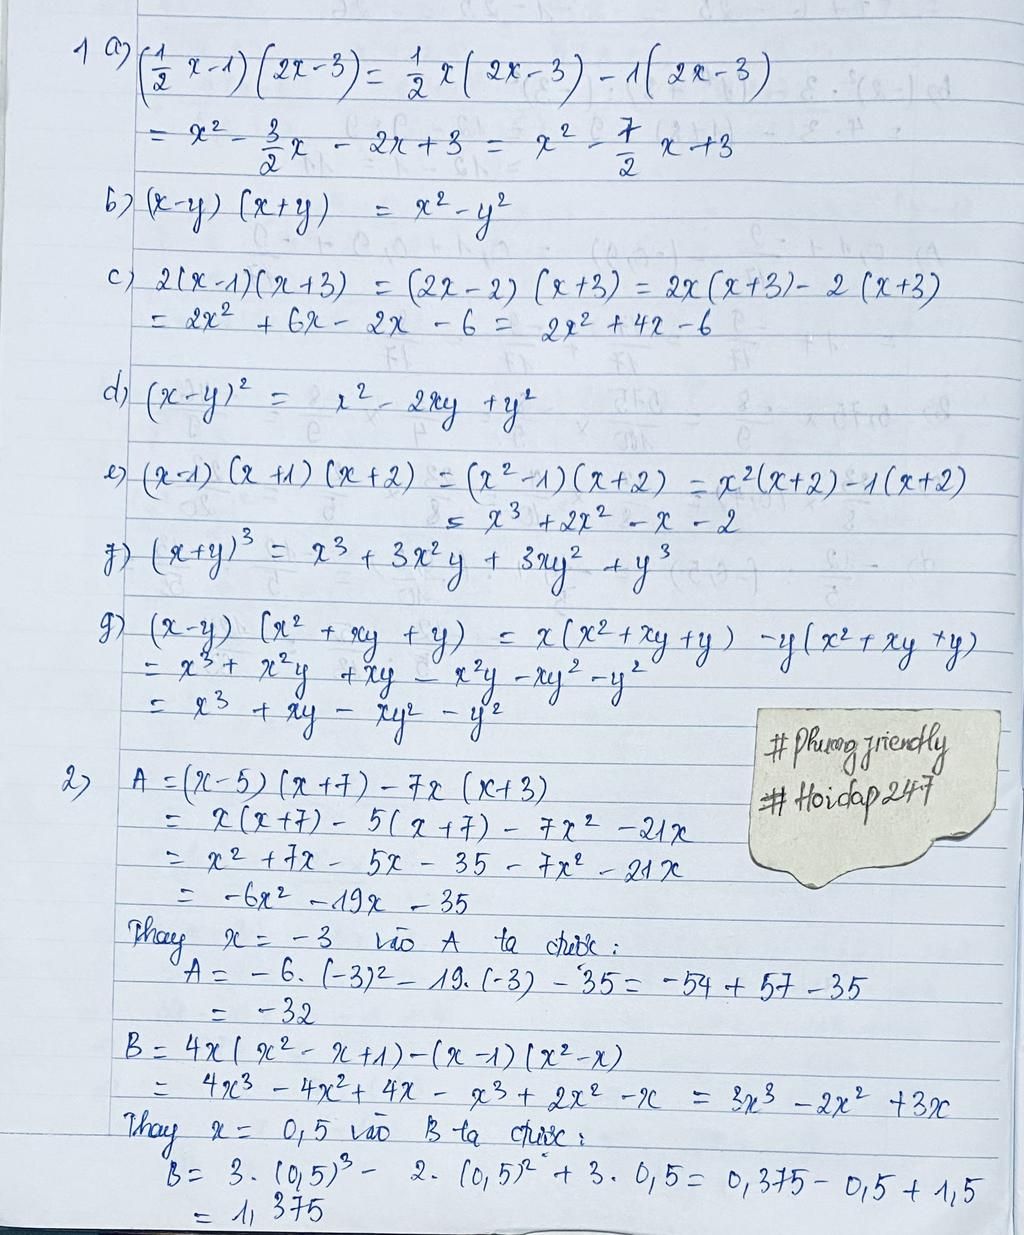 1 a) (1/2 x-1)(2x-3) = 1/2 x(2x-3) - 1(2x-3)
= x² - 3/2 x - 2x+3 = x² - 7/2 x +3
b) (x-y)(x+y) = x² - y²
c) 2(x-1)(x+3) = (2x-2)(x+3) = 2x(x+3) - 2(x+3)
= 2x² + 6x - 2x - 6 = 2x² + 4x - 6
d) (x-y)² = x² - 2xy + y²
e) (x-1)(x+1)(x+2) = (x²-1)(x+2) = x²(x+2) - 1(x+2)
= x³ + 2x² - x - 2
f) (x+y)³ = x³ + 3x²y + 3xy² + y³
g) (x-y)(x² + xy + y) = x(x² + xy + y) - y(x² + xy + y)
= x³ + x²y + xy - x²y - xy² - y²
= x³ + xy - xy² - y²
#Phuongfriendly
#Hoidap247
2) A = (x-5)(x+7) - 7x(x+3)
= x(x+7) - 5(x+7) - 7x² - 21x
= x² + 7x - 5x - 35 - 7x² - 21x
= -6x² - 19x - 35
Thay x = -3 vào A ta được:
A = -6.(-3)² - 19.(-3) - 35 = -54 + 57 - 35
= -32
B = 4x(x² - x + 1) - (x-1)(x² - x)
= 4x³ - 4x² + 4x - x³ + 2x² - x = 3x³ - 2x² + 3x
Thay x = 0,5 vào B ta được:
B = 3.(0,5)³ - 2.(0,5)² + 3.0,5 = 0,375 - 0,5 + 1,5
= 1,375